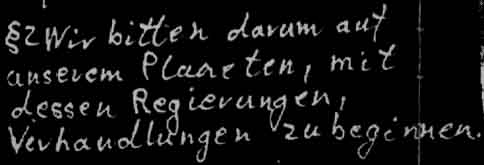 §2 Wir bitten darum auf
unserem Planeten, mit
dessen Regierungen,
Verhandlungen zu beginnen.